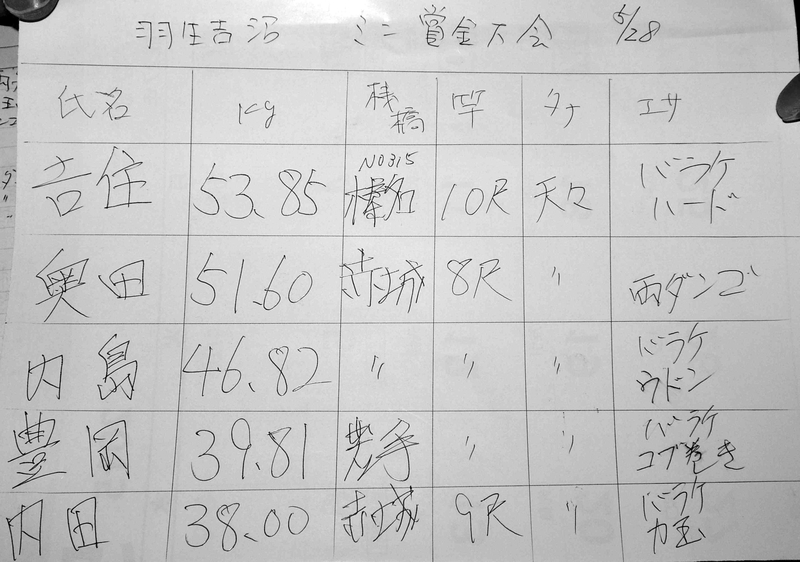 羽生吉沼 ミニ賞金大会 5/28
氏名 Kg 桟橋 竿 タナ エサ
吉住 53.85 NO315 榛名 10尺 天々 バラケ ハード
奥田 51.60 赤城 8尺 〃 両ダンゴ
内島 46.82 〃 〃 〃 バラケ ウドン
豊岡 39.81 〃 〃 バラケ コブ巻き
内田 38.00 赤城 9尺 〃 バラケ 力玉